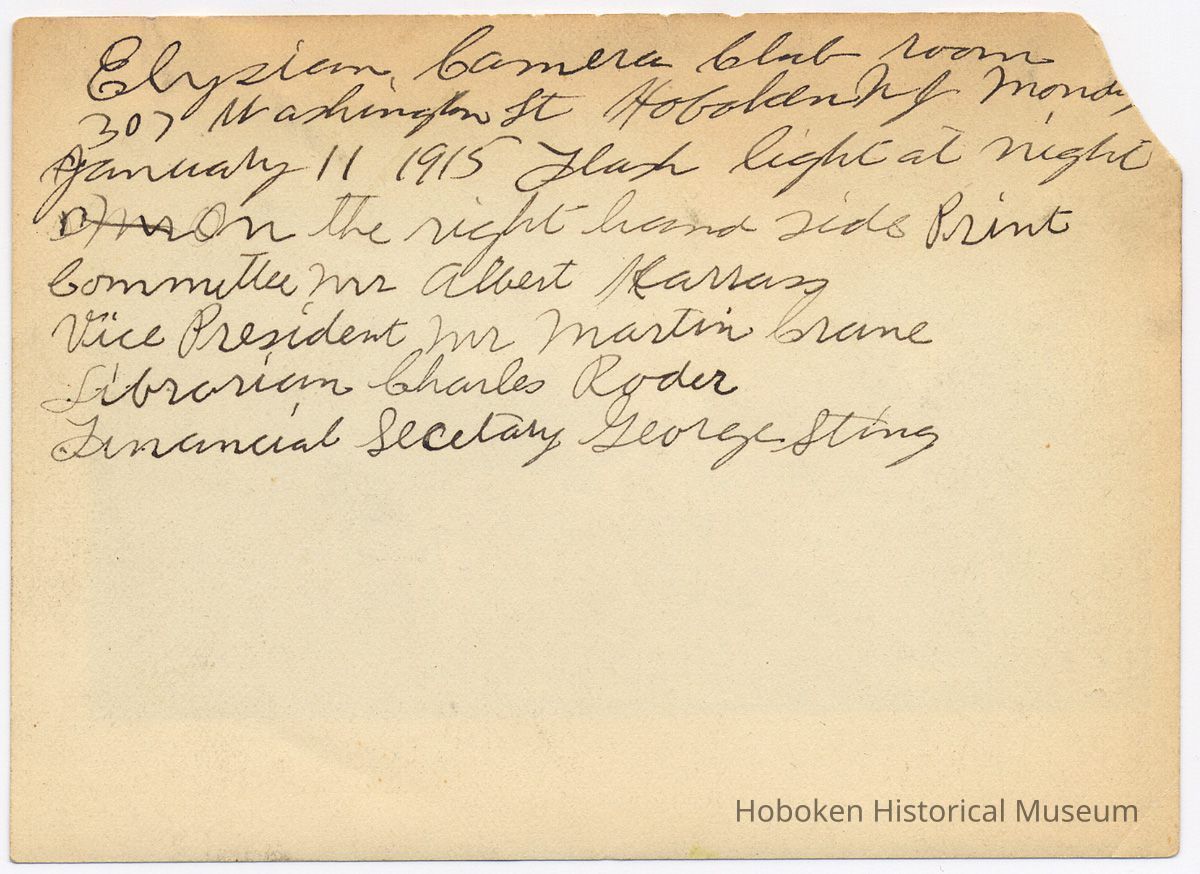 Elysian Camera Club room
307 Washington St Hoboken NJ Monday
January 11 1915 Flash light at night
On the right hand side Print
Committee Mr Albert Harrass
Vice President Mr Martin Crane
Librarian Charles Roder
Financial Secetary George Sting
Hoboken Historical Museum